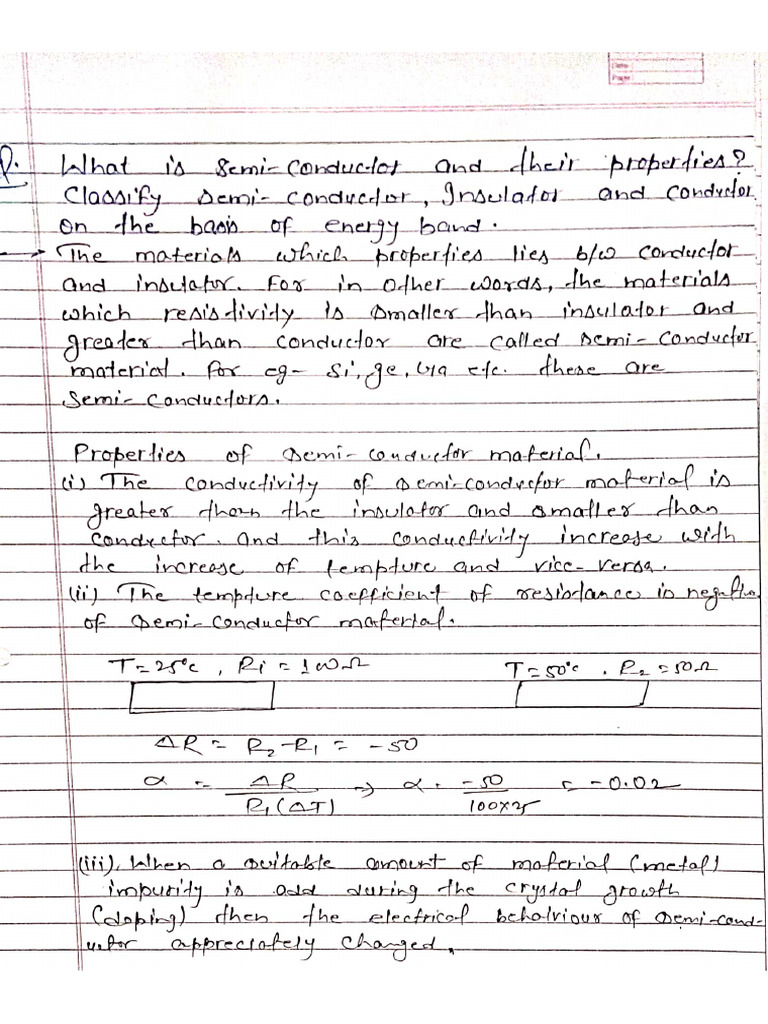 Date
Page
Q. What is Semi-Conductor and their properties?
Classify semi-conductor, Insulator and conductor
on the basis of energy band.
→ The materials which properties lies b/w conductor
and insulator. For in other words, the materials
which resistivity is smaller than insulator and
greater than conductor are called semi-conductor
material. for eg- Si, ge, etc. these are
Semi-Conductors.
Properties of semi-conductor material.
(i) The conductivity of semi-conductor material is
greater than the insulator and smaller than
conductor. and this conductivity increase with
the increase of tempture and vice-versa.
(ii) The tempture coefficient of resistance is negative
of semi-conductor material.
T=25°c , R1 = 100Ω T=50°c , R2=50Ω
ΔR = R2-R1 = -50
α = ΔR / R1(ΔT) ⇒ α = -50 / 100×25 = -0.02
(iii), When a suitable amount of material (metal)
impurity is add during the crystal growth
(doping) then the electrical behalviour of semi-cond-
uctor appreciately changed.